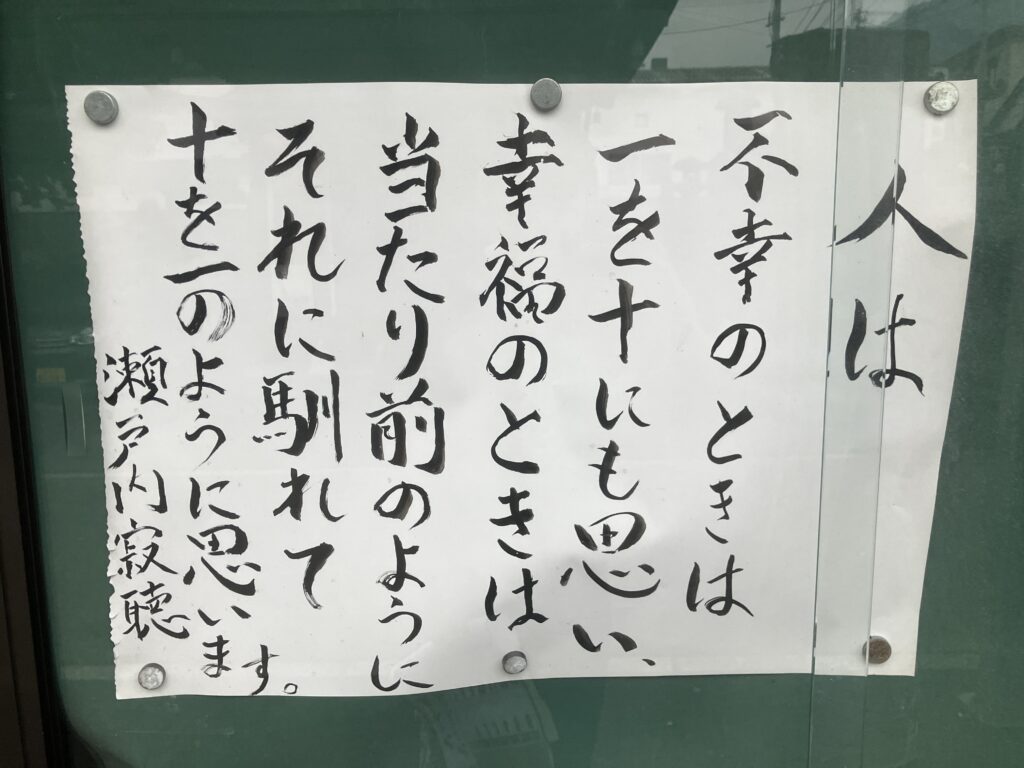 人は
不幸のときは
一を十にも思い、
幸福のときは
当たり前のように
それに馴れて
十を一のように思います。
瀬戸内寂聴